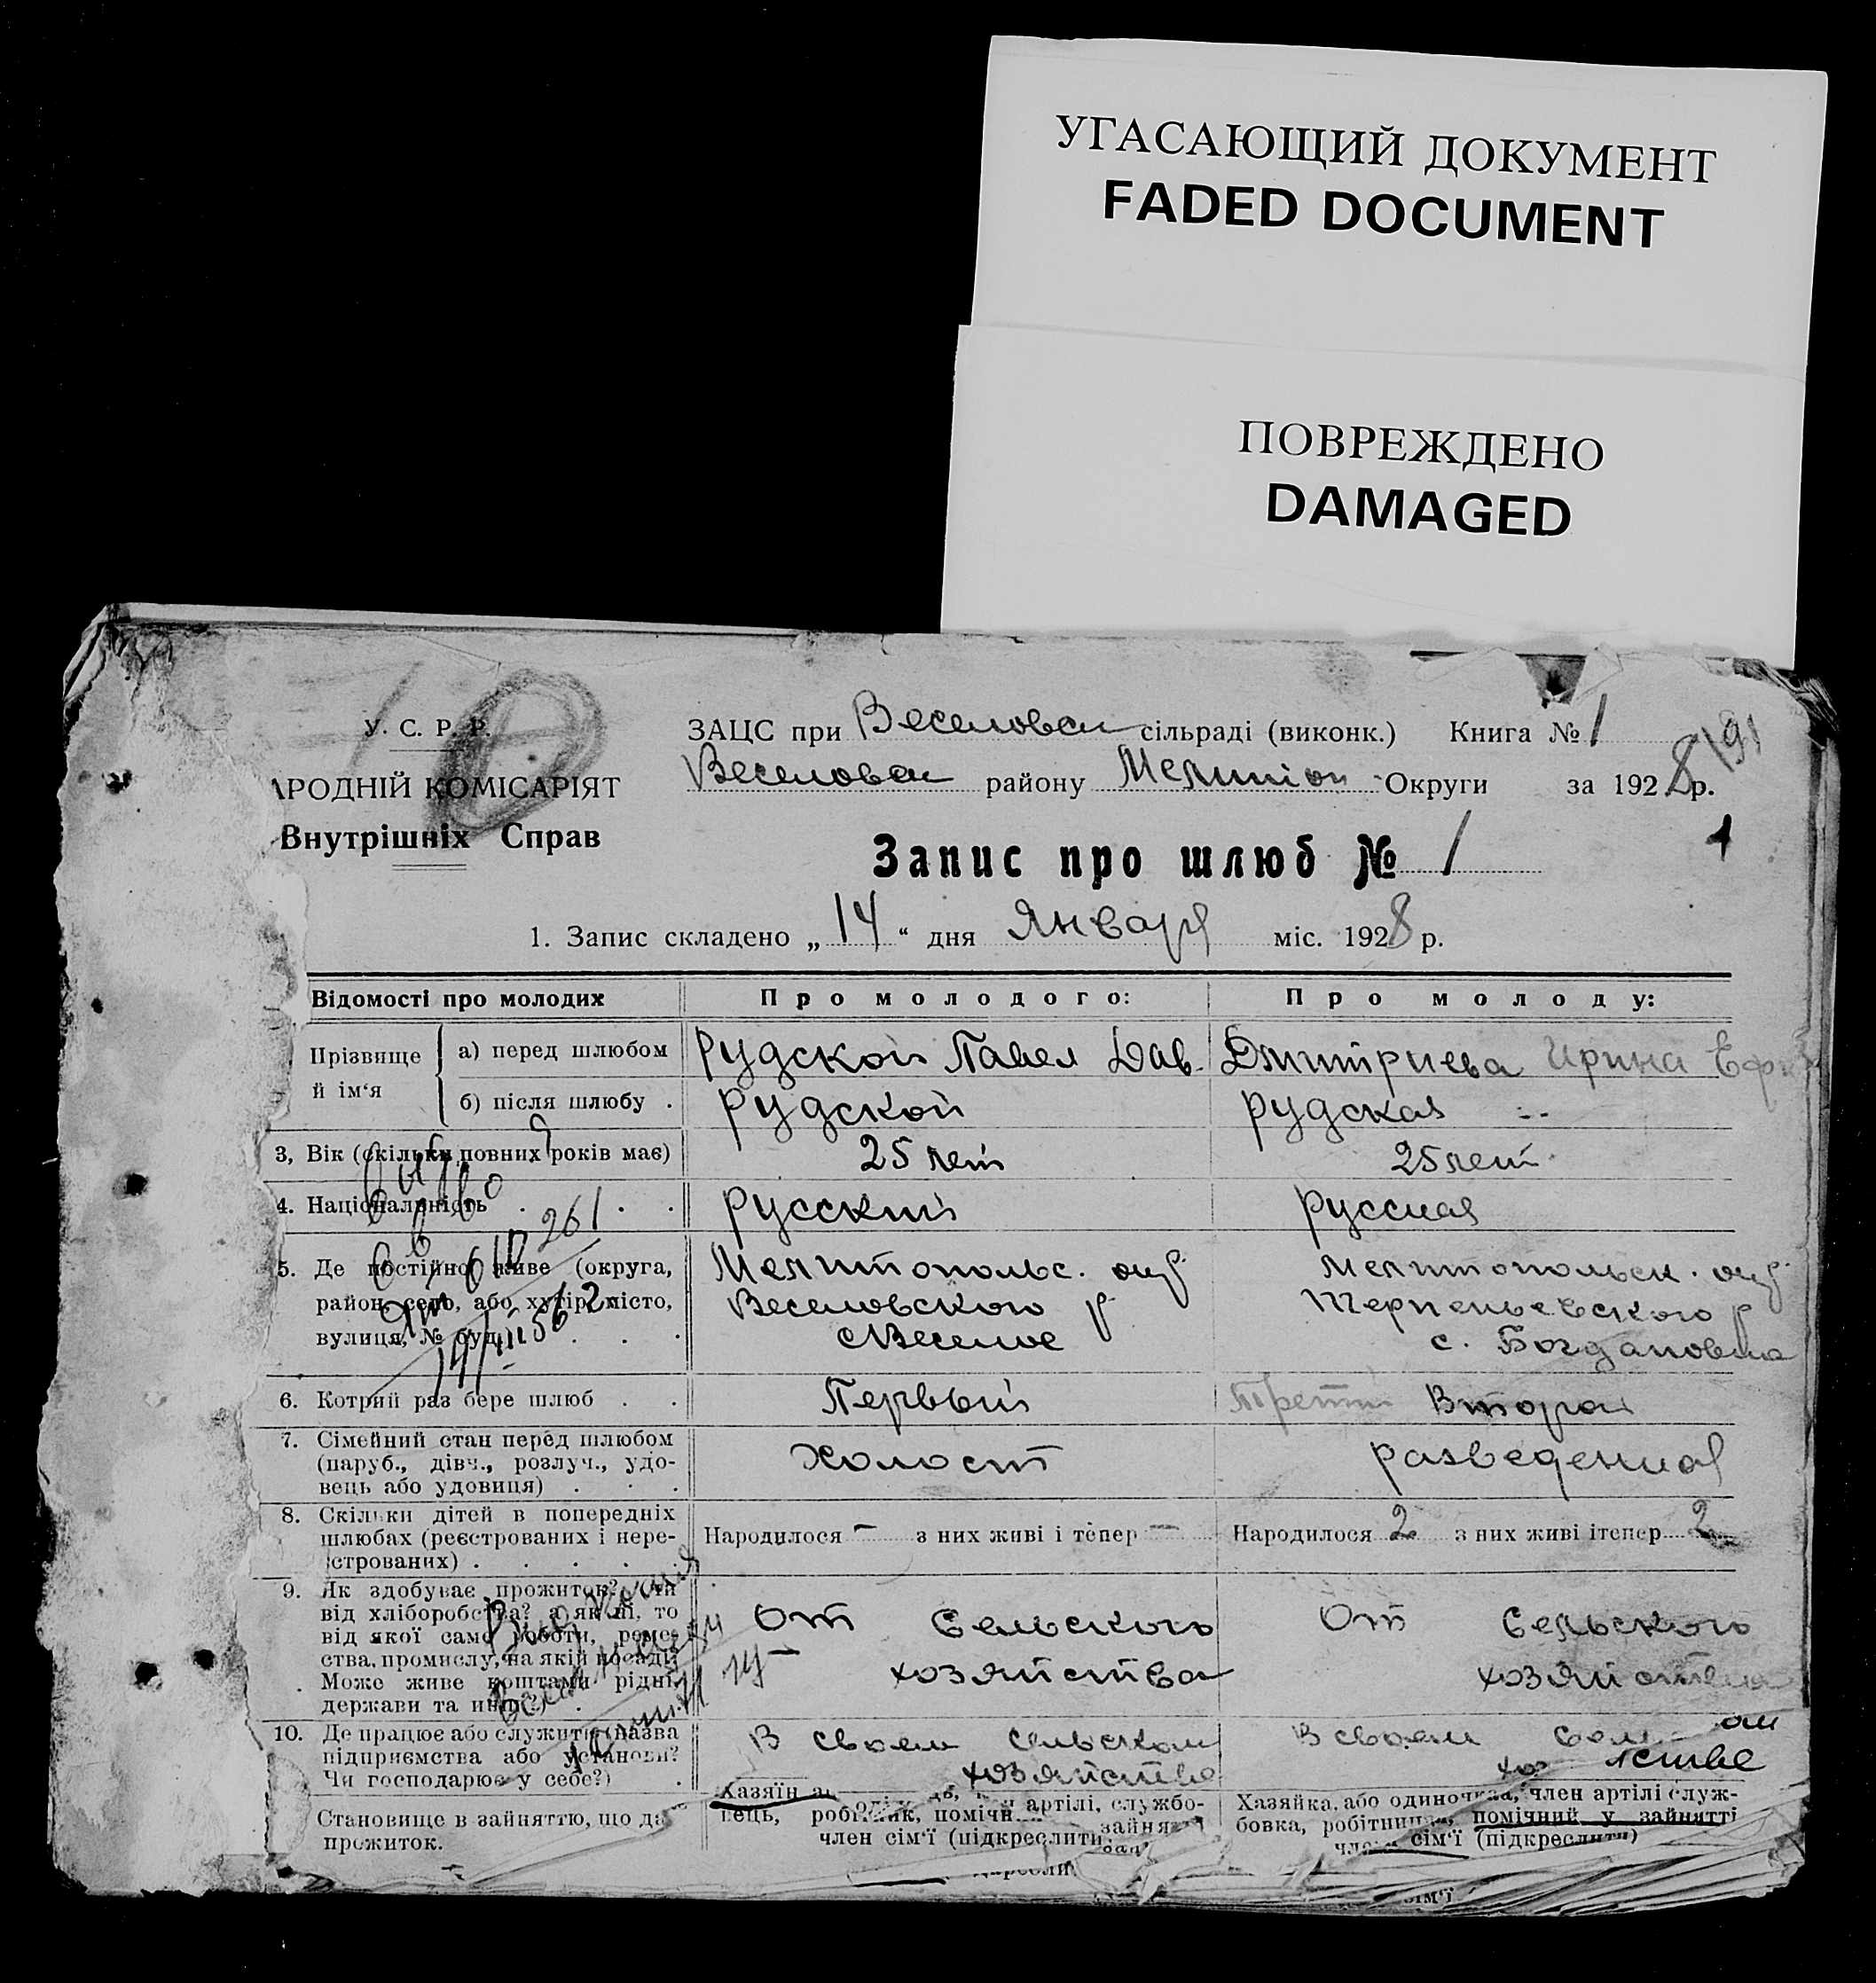 УГАСАЮЩИЙ ДОКУМЕНТ
FADED DOCUMENT
ПОВРЕЖДЕНО
DAMAGED
У. С. Р. Р.
АРОДНІЙ КОМІСАРІЯТ
Внутрішніх Справ
ЗАЦС при Веселовск сільраді (виконк.) Книга № 1
191
Веселовск району Мелитоп Округи за 1928 р.
Запис про шлюб № 1
1
1. Запис складено „14“ дня Января міс. 1928 р.
Відомості про молодих Про молодого: Про молоду:
Прізвище й ім‘я
а) перед шлюбом Рудской Павел Дав. Дмитриева Ирина Ефи
б) після шлюбу . Рудской Рудская
3, Вік (скільки повних років має) 25 лет 25 лет
4. Національність . . . Русский Русская
261
5. Де постійно живе (округа, Мелитопольс. окр. Мелитопольск. окр.
район, село, або хутір, місто, Веселовского р Терпеньевского р
вулиця, № буд. . . с Веселое с. Богдановка
6. Котрий раз бере шлюб . . Первый Трети Вторая
7. Сімейний стан перед шлюбом Холост разведенная
(паруб., дівч., розлуч., удо-
вець або удовиця) . . .
8. Скільки дітей в попередніх
шлюбах (реєстрованих і нере- Народилося – з них живі і тепер – Народилося 2 з них живі ітепер 2
єстрованих) . . . . .
9. Як здобуває прожиток? Чи
від хліборобства? а як ні, то От Сельского От Сельского
від якої само роботи, реме-
ства, промислу, на якій посаді? хозяйства хозяйства
Може живе коштами рідні,
держави та инш.?) .
10. Де працює або служить (назва В своем сельском В своем
підприємства або установи? хозяйстве
Чи господарює у себе?) .
Становище в зайняттю, що да
прожиток.
Хазяїн артілі, службо-
вець, робітник, помічн. зайня
член сім‘ї (підкреслити
Хазяйка, або одиночка, член артілі служ-
бовка, робітниця, помічний у зайнятті
член сім‘ї (підкреслити)
сім‘ї